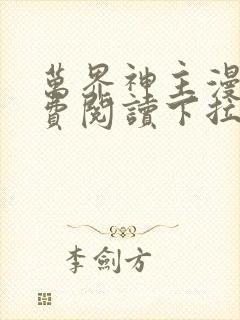 萬界神主漫
費閱讀下拉
李劍方